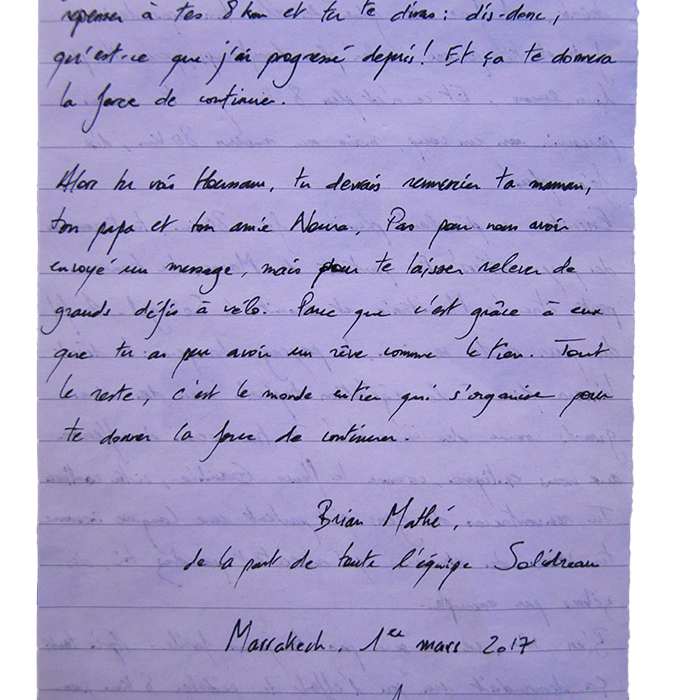 repenser à tes 8 km et tu te diras : dis-donc,
qu'est-ce que j'ai progressé depuis ! Et ça te donnera
la force de continuer.
Alors tu vois Houssam, tu devrais remercier ta maman,
ton papa et ton amie Noura. Pas pour nous avoir
envoyé un message, mais pour te laisser relever de
grands défis à vélo. Parce que c'est grâce à eux
que tu as pu avoir un rêve comme le tien. Tout
le reste, c'est le monde entier qui s'organise pour
te donner la force de continuer.
Brian Mathé,
de la part de toute l'équipe Solidreau
Marrakech, 1er mars 2017